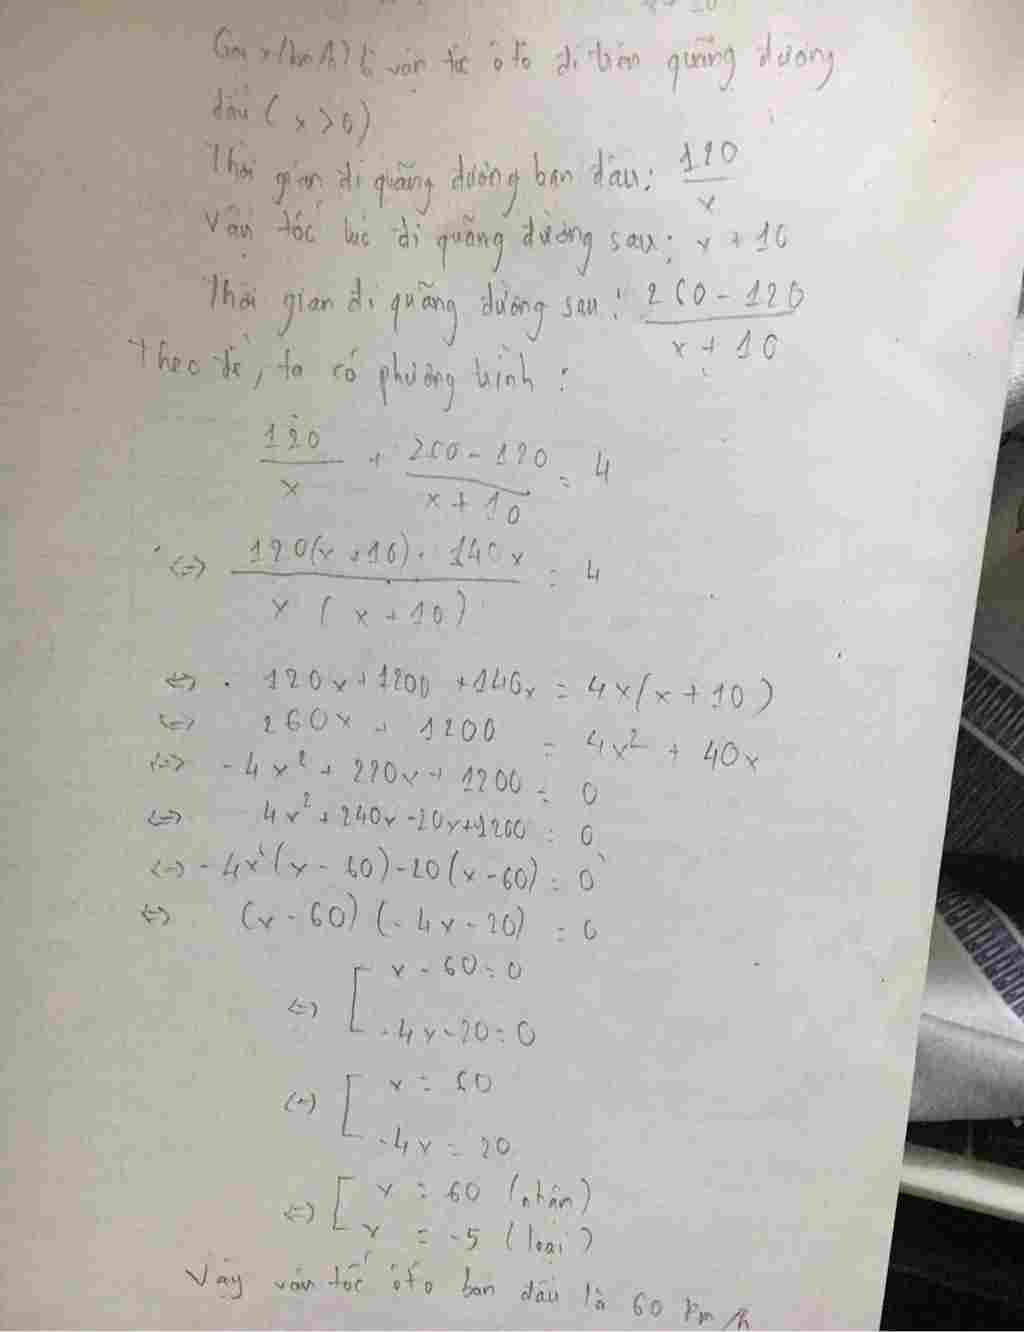 Gọi x (km/h) là vận tốc ô tô đi trên quãng đường
đầu ( x > 0 )
Thời gian đi quãng đường ban đầu: 120/x
Vận tốc lúc đi quãng đường sau: x + 10
Thời gian đi quãng đường sau: (260 - 120)/(x + 10)
Theo đề, ta có phương trình :
120/x + (260 - 120)/(x + 10) = 4
<=> (120(x + 10) + 140x)/(x ( x + 10 )) = 4
<=> 120x + 1200 + 140x = 4x ( x + 10 )
<=> 260x + 1200 = 4x² + 40x
<=> -4x² + 220x + 1200 = 0
<=> 4x² + 240x - 20x + 1200 = 0
<=> - 4x (x - 60) - 20 (x - 60) = 0
<=> (x - 60) (- 4x - 20) = 0
<=> [ x - 60 = 0
-4x - 20 = 0
<=> [ x = 60
-4x = 20
<=> [ x = 60 (nhận)
x = -5 (loại)
Vậy vận tốc ôtô ban đầu là 60 km/h